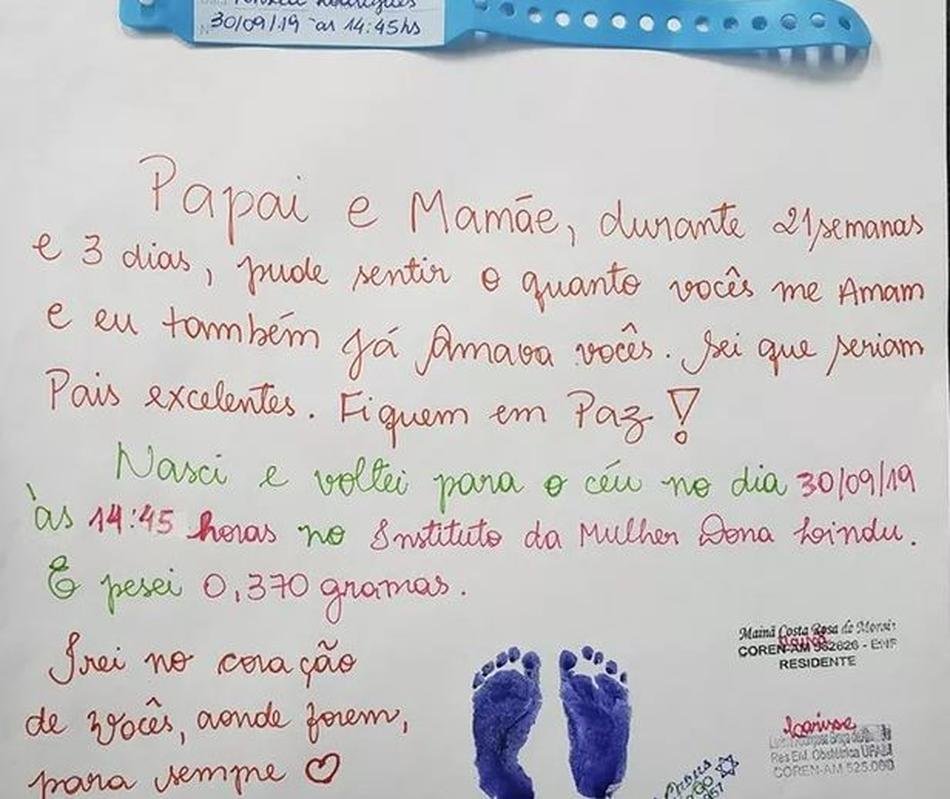 30/09/19 as 14:45hs
Papai e Mamãe, durante 21 semanas
e 3 dias, pude sentir o quanto vocês me Amam
e eu também já Amava vocês. Sei que seriam
Pais excelentes. Fiquem em Paz!
Nasci e voltei para o céu no dia 30/09/19
às 14:45 horas no Instituto da Mulher Dona Lindu.
E pesei 0,370 gramas.
Irei no coração
de vocês, aonde forem,
para sempre
Mainã Costa Rosa de
COREN-AM 982626 - ENF
RESIDENTE
Larisse
Res Enf. Obstétrica UFAM
COREN-AM 525.000